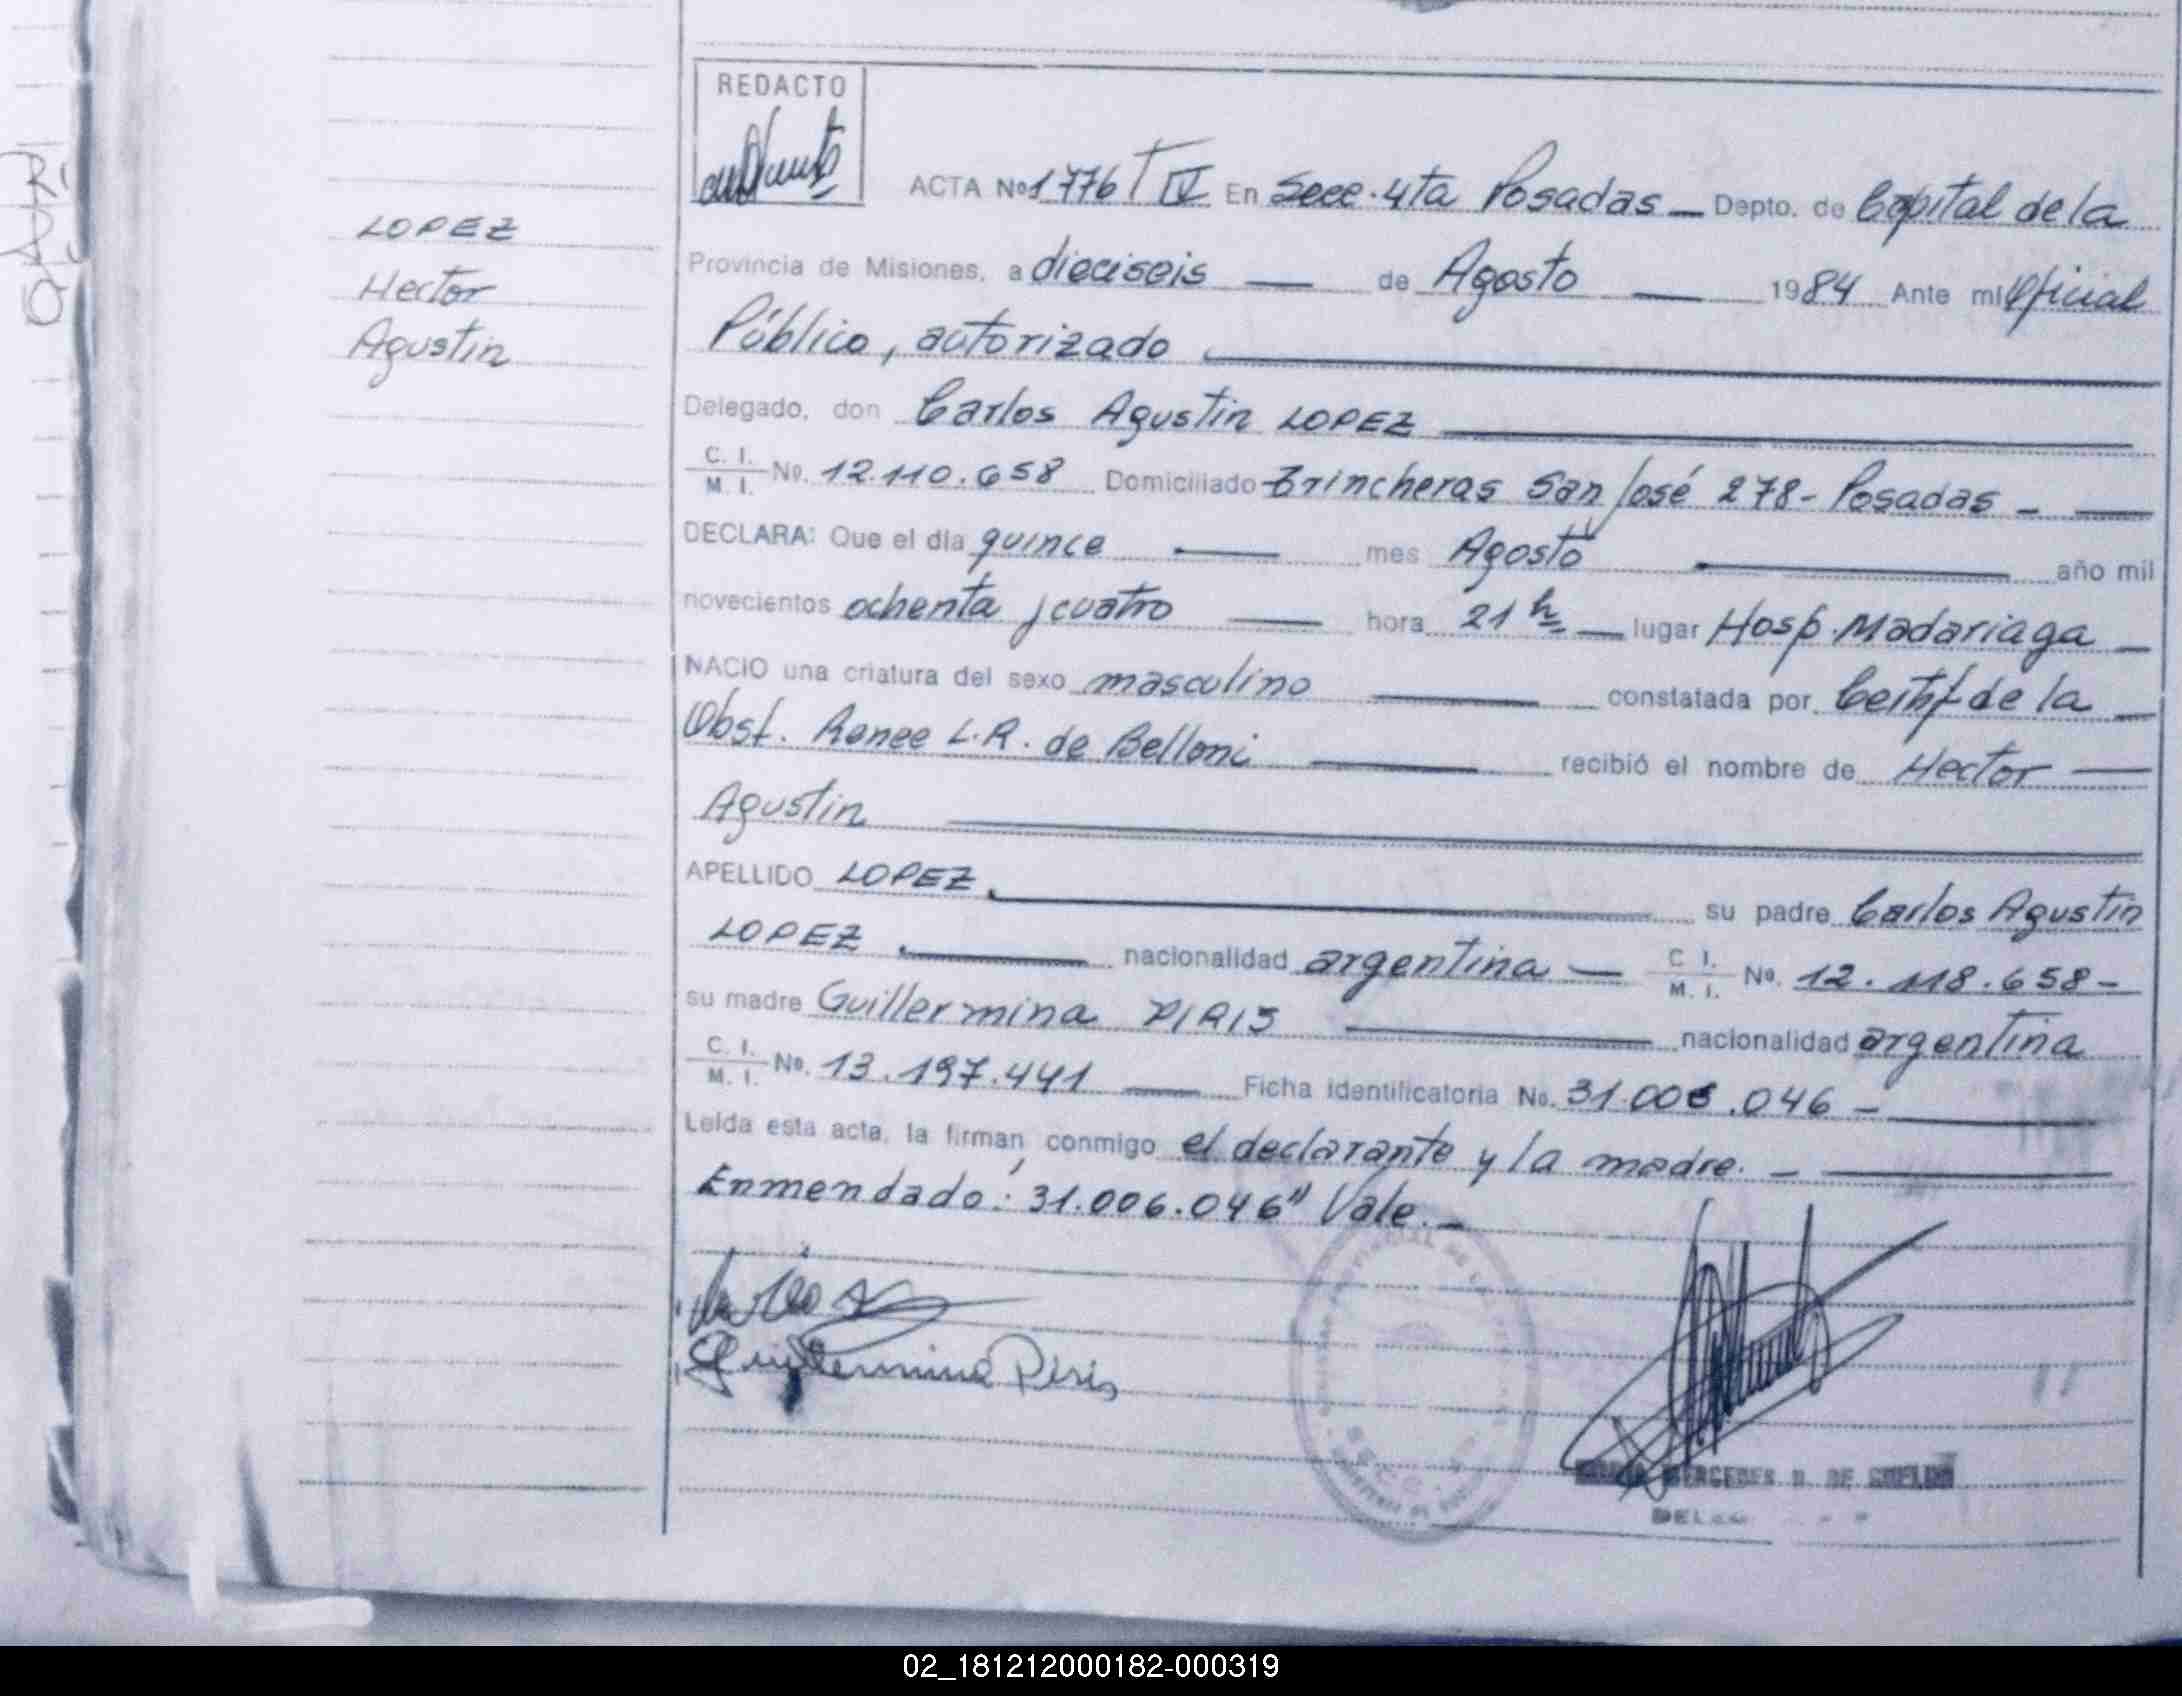 REDACTO
ACTA Nº 1776 T IV En Secc. 4ta Posadas — Depto. de Capital de la
LOPEZ
Provincia de Misiones, a dieciseis — de Agosto — 1984 Ante mi Oficial
Hector
Público, autorizado
Agustin
Delegado, don Carlos Agustin LOPEZ
C. I.
M. I. No. 12.110.658 Domiciliado Trincheras San José 278 - Posadas -
DECLARA: Que el dia quince — mes Agosto — año mil
novecientos ochenta y cuatro — hora 21 h — lugar Hosp. Madariaga —
NACIO una criatura del sexo masculino — constatada por Certif de la —
Obst. Renee L.R. de Belloni — recibió el nombre de Hector —
Agustin
APELLIDO LOPEZ su padre Carlos Agustin
LOPEZ nacionalidad argentina — C I. M. I. No. 12.118.658 -
su madre Guillermina PIRIS — nacionalidad argentina
C. I.
M. I. No. 13.197.441 — Ficha Identificatoria No. 31.006.046 -
Leida esta acta, la firman, conmigo el declarante y la madre. -
Enmendado: 31.006.046" Vale. -
Guillermina Piris
MERCEDES DE
02_181212000182-000319